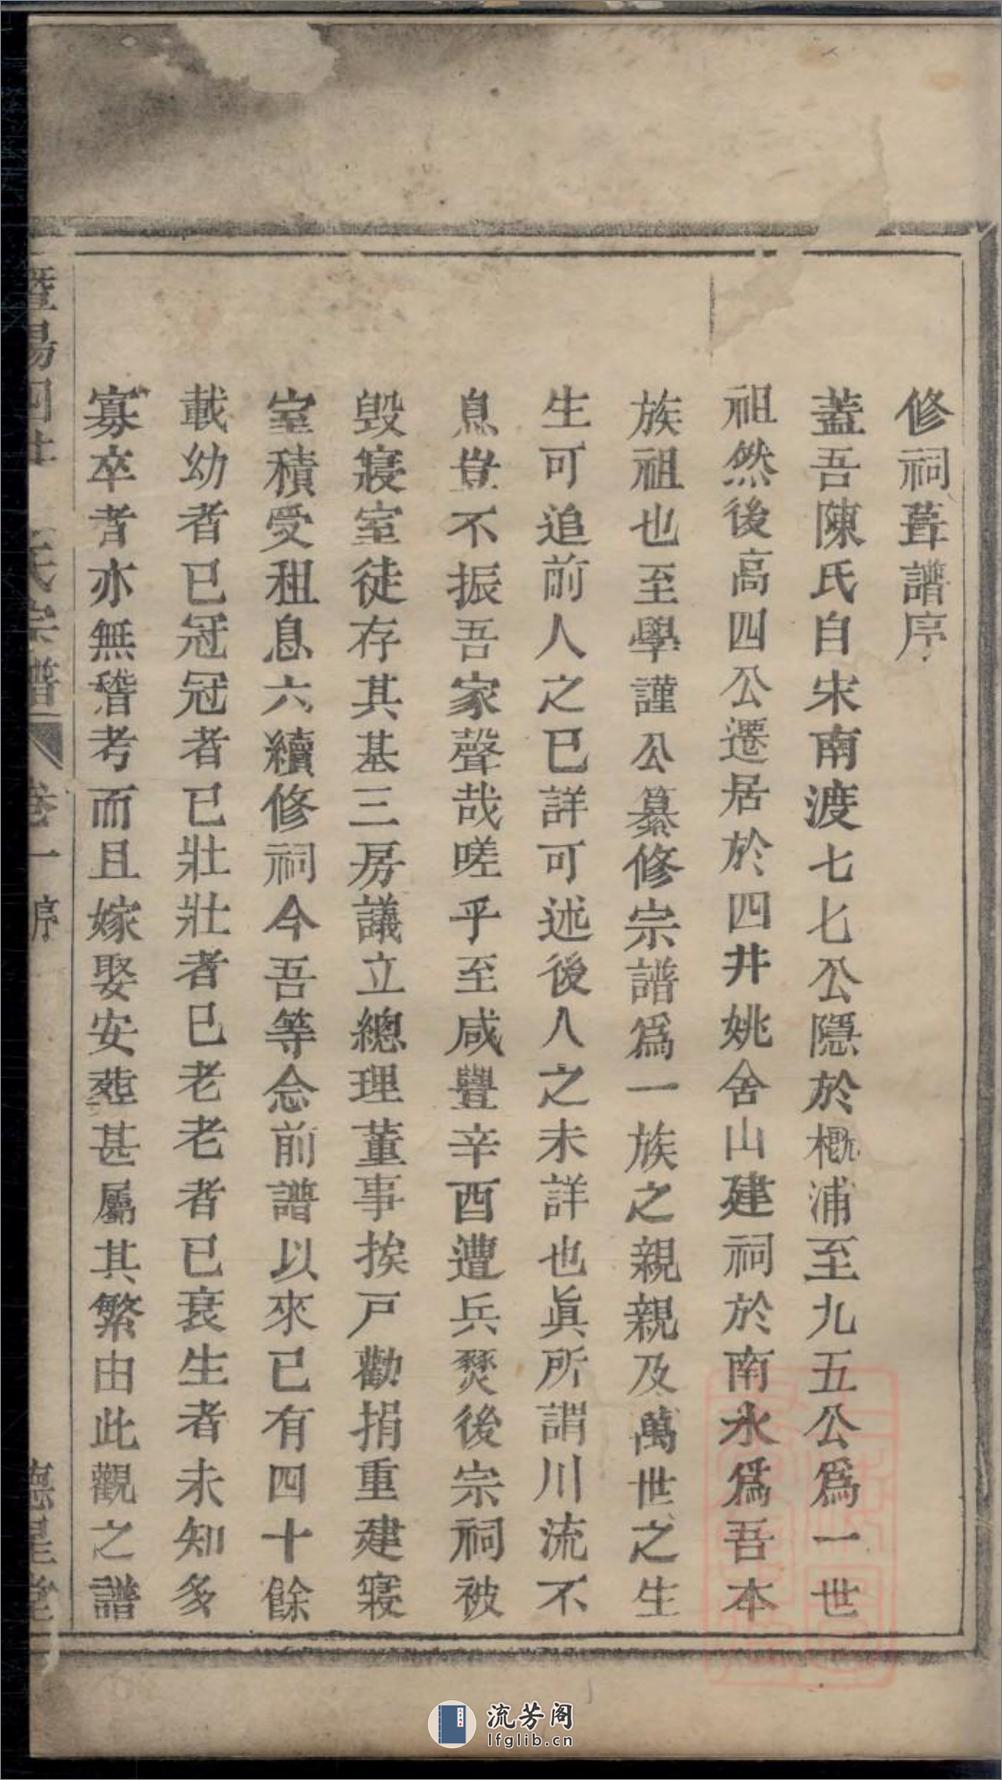 修祠葺譜序
蓋吾陳氏自宋南渡七七公隱於概浦至九五公爲一世
祖然後高四公遷居於四井姚舍山建祠於南水爲吾本
族祖也至學謹公纂修宗譜爲一族之親親及萬世之生
生可追前人之已詳可述後人之未詳也眞所謂川流不
息豈不振吾家聲哉嗟乎至咸豐辛酉遭兵燹後宗祠被
毀寢室徒存其基三房議立總理董事挨戸勸捐重建寢
室積受租息六續修祠今吾等念前譜以來已有四十餘
載幼者已冠冠者已壯壯者已老老者已衰生者未知多
寡卒者亦無稽考而且嫁娶安葬甚屬其繁由此觀之譜
暨陽四井 氏宗譜 卷一 序
流芳阁
lfglib.cn